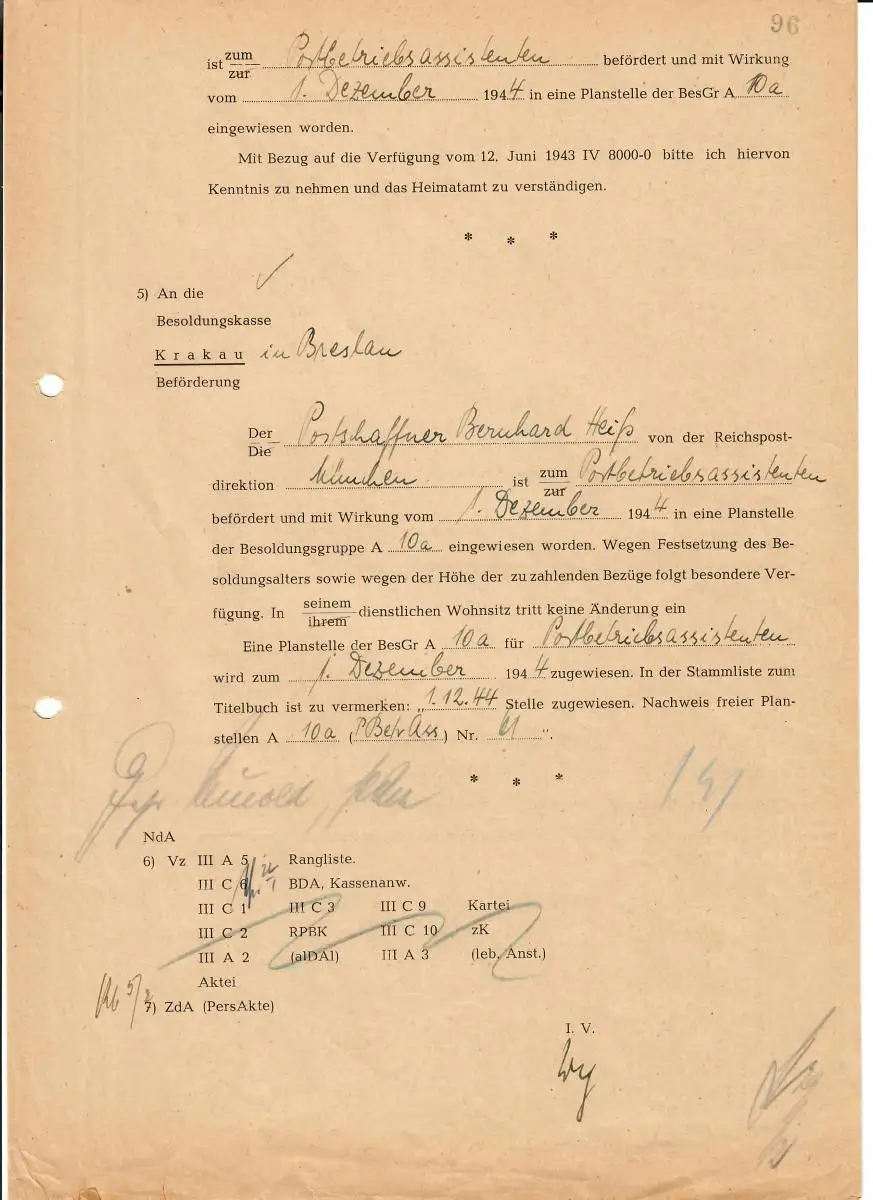 96
ist zum/zur Postbetriebsassistenten befördert und mit Wirkung
vom 1. Dezember 1944 in eine Planstelle der BesGr A 10a
eingewiesen worden.
Mit Bezug auf die Verfügung vom 12. Juni 1943 IV 8000-0 bitte ich hiervon
Kenntnis zu nehmen und das Heimatamt zu verständigen.
* * *
5) An die
Besoldungskasse
Krakau in Breslau
Beförderung
Der/Die Postschaffner Bernhard Heiß von der Reichspost-
direktion München ist zum/zur Postbetriebsassistenten
befördert und mit Wirkung vom 1. Dezember 1944 in eine Planstelle
der Besoldungsgruppe A 10a eingewiesen worden. Wegen Festsetzung des Be-
soldungsalters sowie wegen der Höhe der zu zahlenden Bezüge folgt besondere Ver-
fügung. In seinem/ihrem dienstlichen Wohnsitz tritt keine Änderung ein
Eine Planstelle der BesGr A 10a für Postbetriebsassistenten
wird zum 1. Dezember 1944 zugewiesen. In der Stammliste zum
Titelbuch ist zu vermerken: „1.12.44 Stelle zugewiesen. Nachweis freier Plan-
stellen A 10a (PBetrAss) Nr. “.
* * *
NdA
6) Vz III A 5 Rangliste.
III C 6 BDA, Kassenanw.
III C 1 III C 3 III C 9 Kartei
III C 2 RPBK III C 10 zK
III A 2 (alDAl) III A 3 (leb. Anst.)
Aktei
7) ZdA (PersAkte)
I. V.